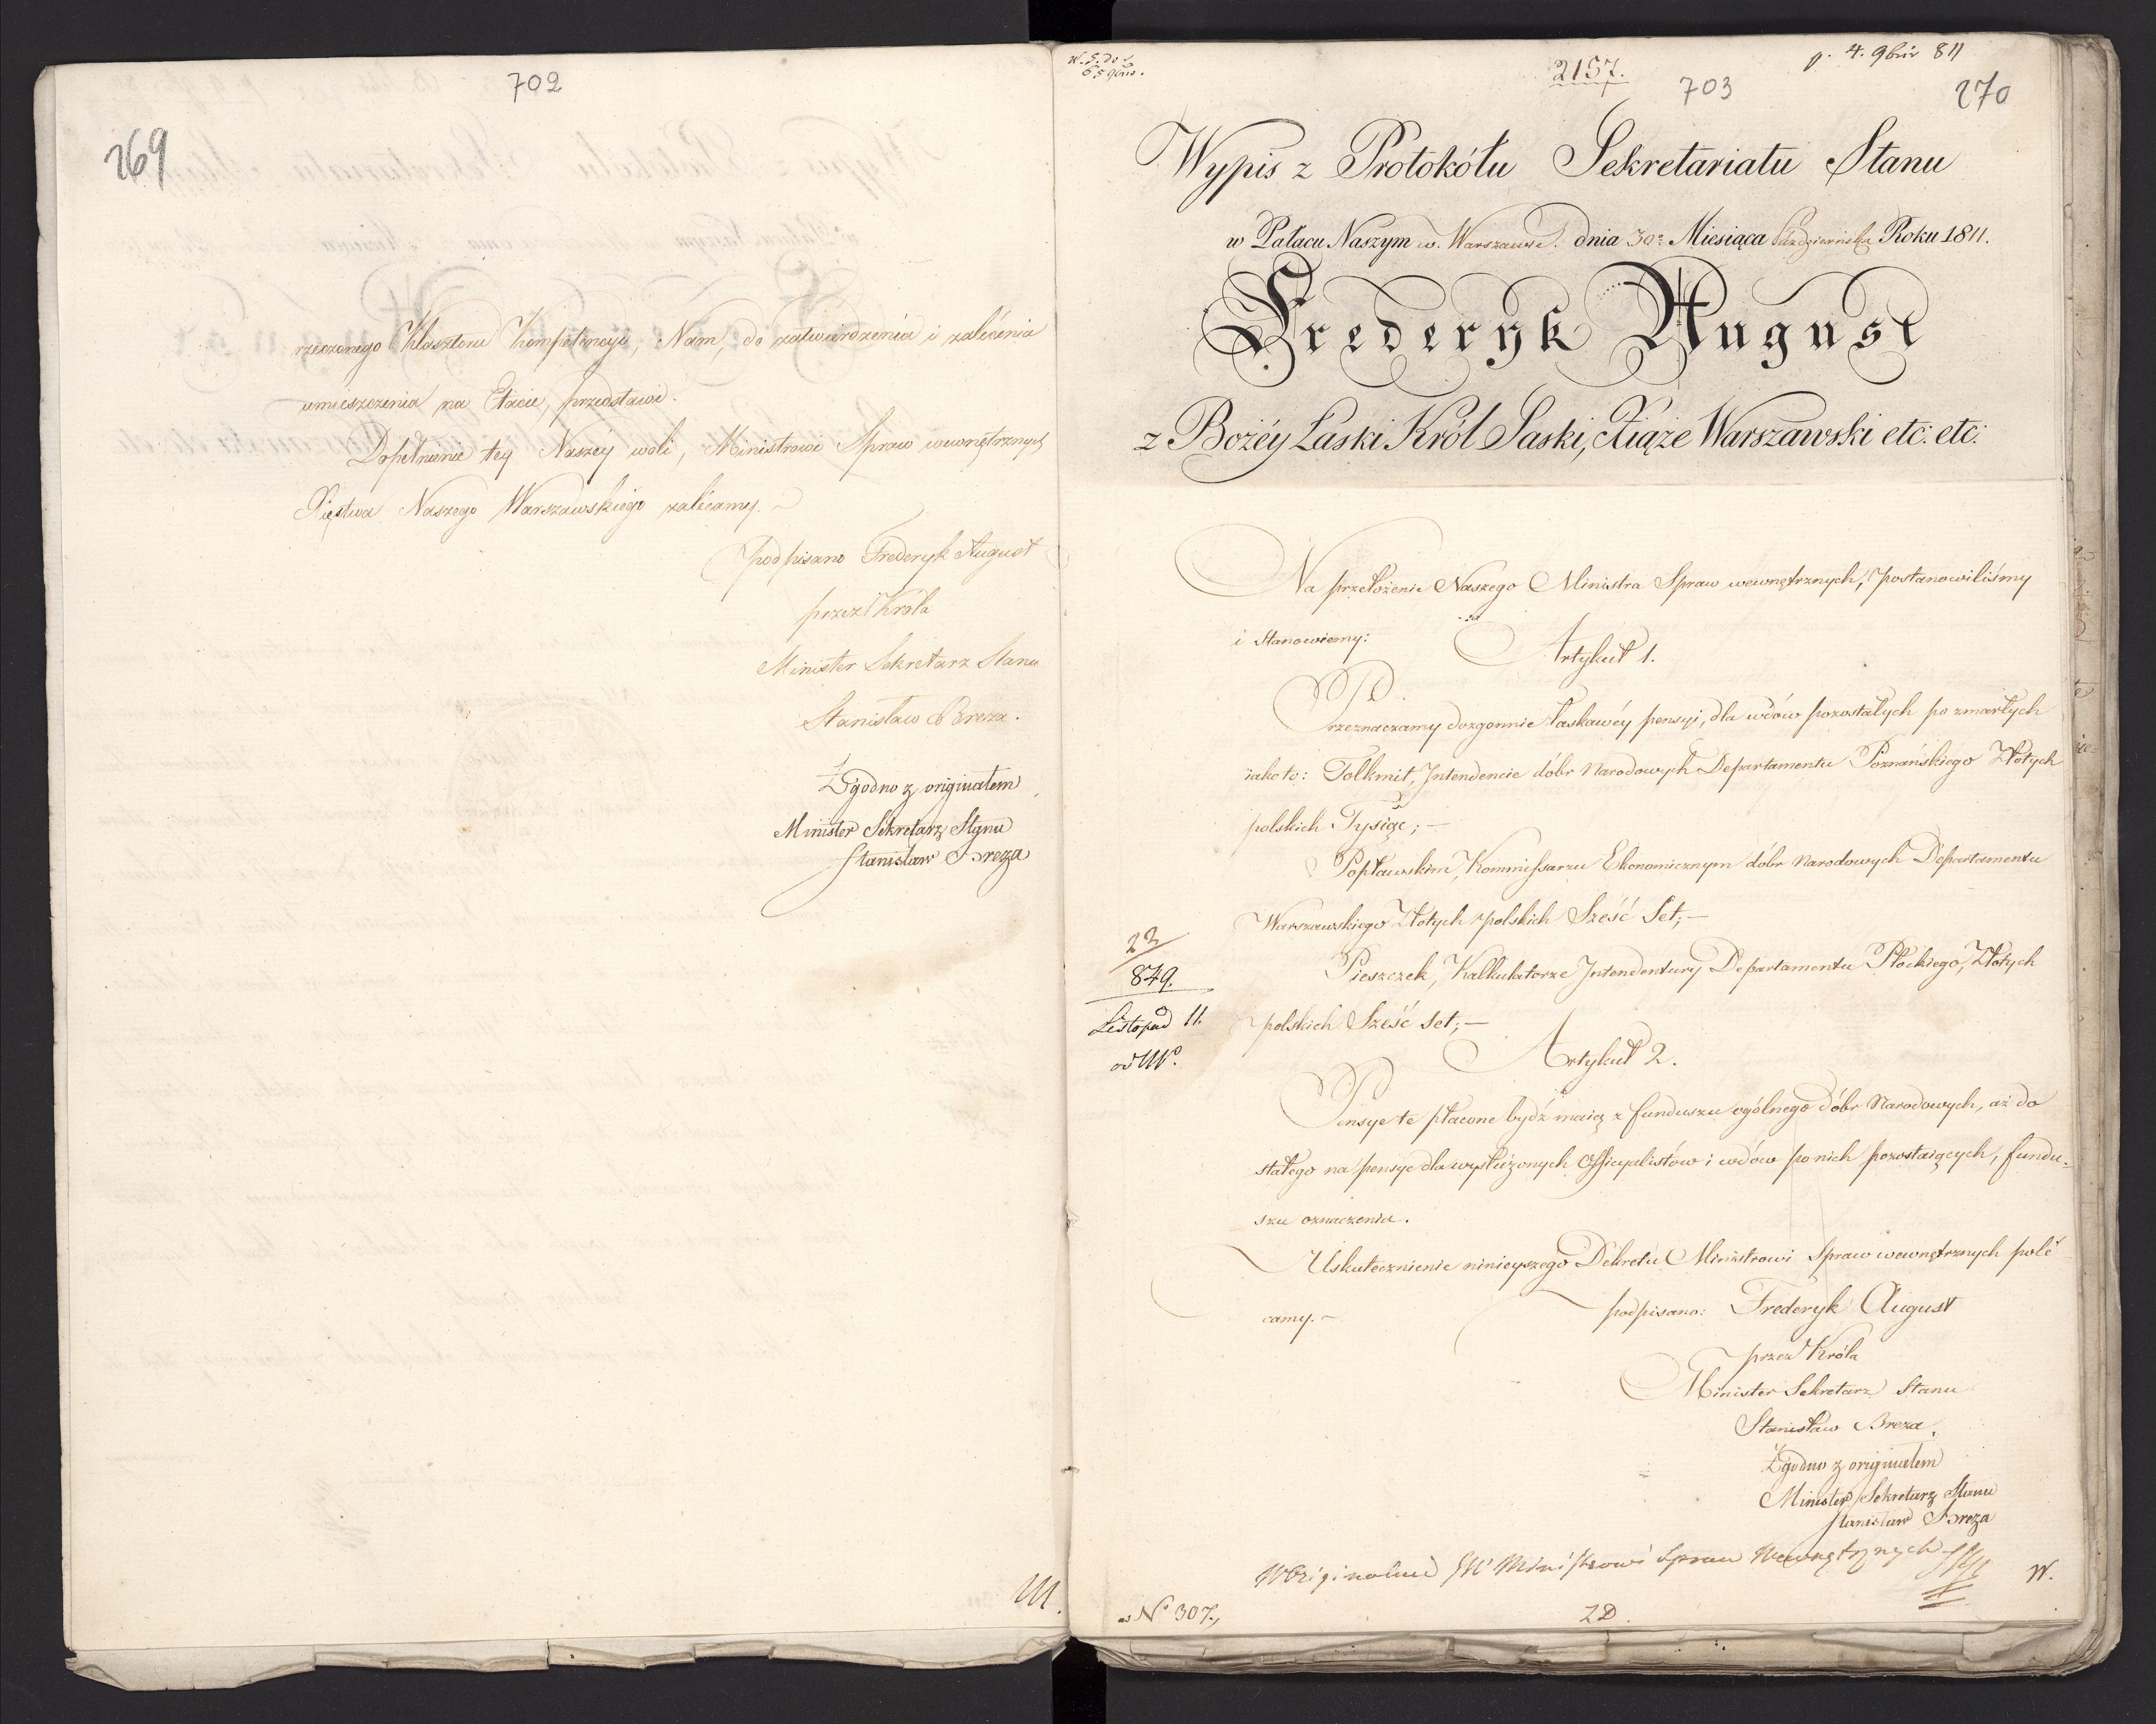 702
269
rzeczonego Klasztoru Kompetencyi, Nam, do zatwierdzenia i zalécenia
umieszczenia na Etacie, przedstawi.
Dopełnienie tey Naszey woli, Ministrowi Spraw wewnętrznych
Xięstwa Naszego Warszawskiego zalécamy. –
podpisano Frederyk August
przez Króla
Minister Sekretarz Stanu
Stanisław Breza.
Zgodno z originałem
Minister Sekretarz Stanu
Stanisław Breza
2157.
703
p. 4. 9bris 811
270
Wypis z Protokółu Sekretariatu Stanu
w Pałacu Naszym w. Warszawie. dnia 30º Miesiąca Października Roku 1811.
Frederyk August
z Bożéy Łaski Król Saski, Xiąże Warszawski etc. etc:
Na przełożenie Naszego Ministra Spraw wewnętrznych, postanowiliśmy
i Stanowiemy:
Artykuł 1.
Przeznaczamy dozgonnie łaskawéy pensyi, dla wdów pozostałych po zmarłych
iako to: Tolkmit, Intendencie dóbr Narodowych Departamentu Poznańskiego Złotych
polskich Tysiąc; –
Popławskim, Kommissarzu Ekonomicznym dóbr Narodowych Departamentu
Warszawskiego Złotych polskich Sześć Set; –
Pieszczek, Kalkulatorze Intendentury Departamentu Płockiego, Złotych
polskich Sześć set; –
23
849.
Listopad 11.
Artykuł 2.
Pensye te płacone bydź maią z funduszu ogólnego dóbr Narodowych, aż do
stałego na pensye dla wysłużonych Officyalistów i wdów po nich pozostaiących, fundu-
szu oznaczenia.
Uskutecznienie ninieyszego Dekretu Ministrowi Spraw wewnętrznych polé
camy. –
podpisano: Frederyk August
przez Króla
Minister Sekretarz Stanu
Stanisław Breza.
Zgodno z originałem
Minister Sekretarz Stanu
Stanisław Breza
JW Ministrowi Spraw Wewnętrznych
W.
Nº 307.
2D.